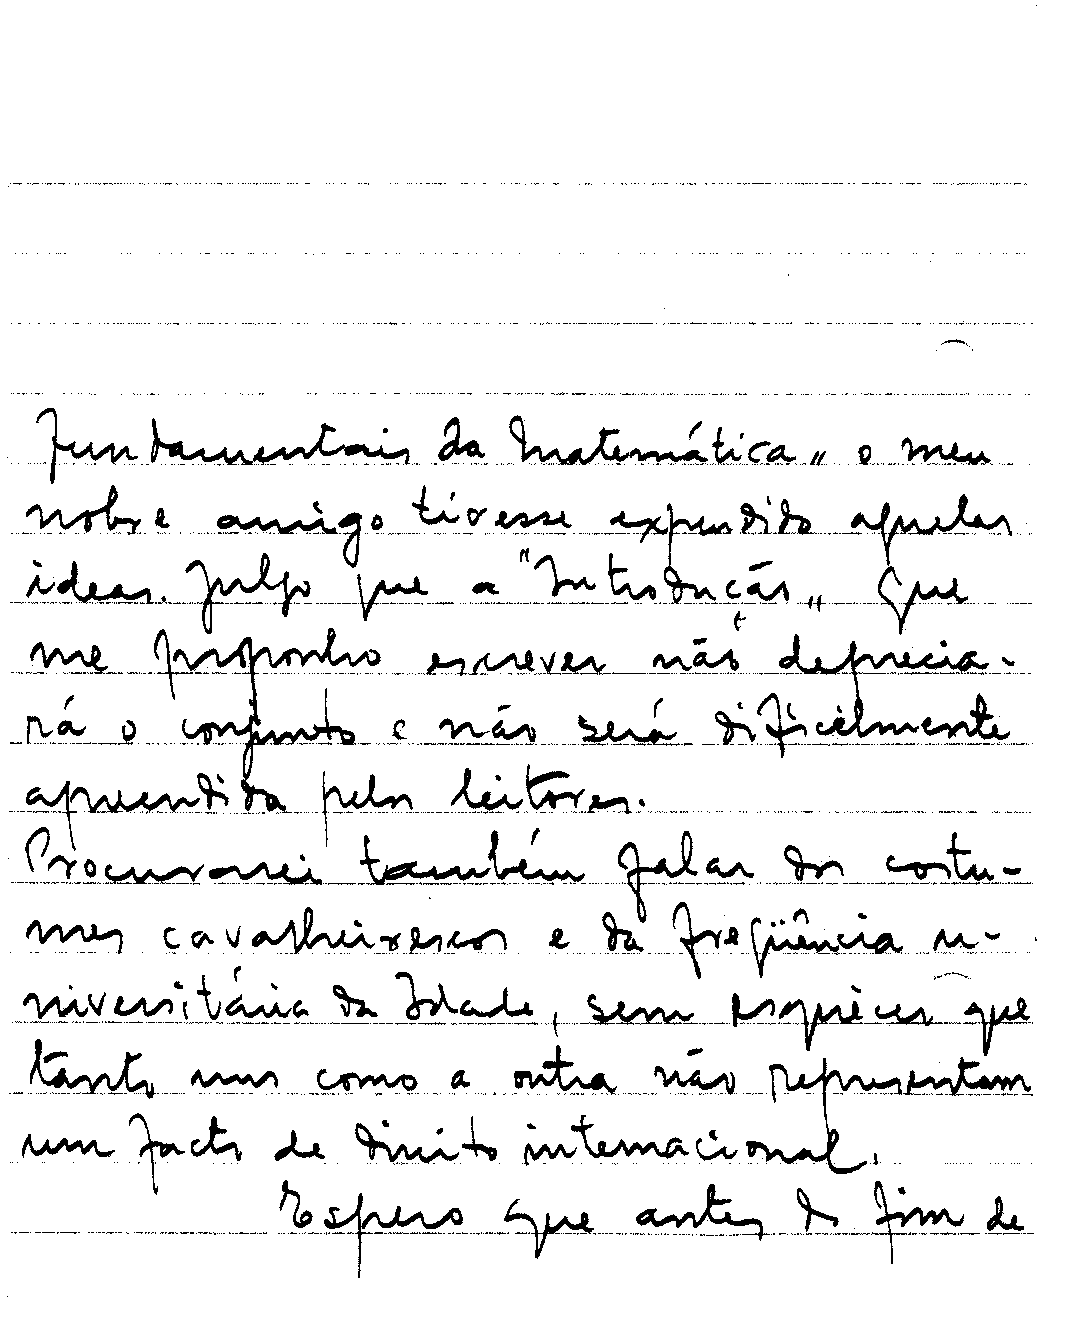 Fundamentais da Matemática„ o meu
nobre amigo tivesse expendido aquelas
ideas. Julgo que a "Introdução„ que
me proponho escrever não deprecia-
rá o conjunto e não será dificilmente
apreendida pelos leitores.
Procurarei também falar dos costu-
mes cavalheirescos e da freqüência u-
niversitária da Idade, sem esquecer que
tanto uns como a outra não representam
um facto de direito internacional.
Espero que antes do fim de